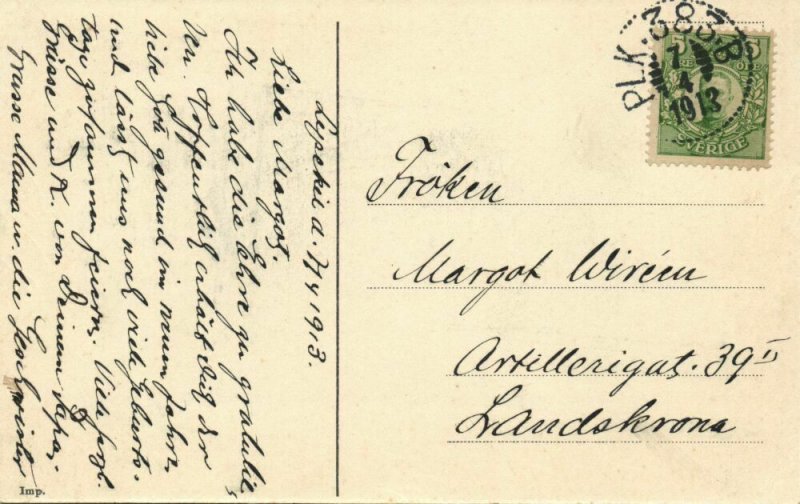 Lysekil d. 7/4 1913.
Liebe Margot.
Ich habe die Ehre zu gratulie-
ren. Hoffentlich erhält Dich der
liebe Gott gesund im neuen Jahre
und lässt uns noch viele Geburts-
tage zusammen feiern. Viele herzl.
Grüsse und K. von Deinem Papa.
Grüsse Mama u. die Geschwister
Imp.
PLK. 383 B
7
4
1913
SVERIGE
Fröken
Margot Wiréen
Artillerigat. 39 II
Landskrona